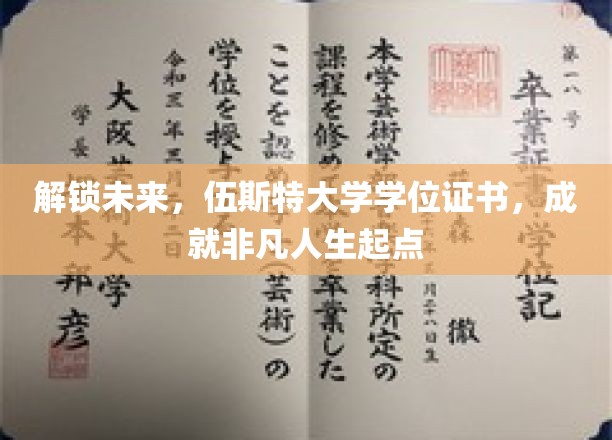 解锁未来，伍斯特大学学位证书，成
就非凡人生起点
第一八号
卒業証書・学位記
本学芸術学
科所定の
課程を修め
卒業した
ことを認め
（芸術）の
学位を授与
令和三年三月
二日
大阪芸術大学
学長
邦彦